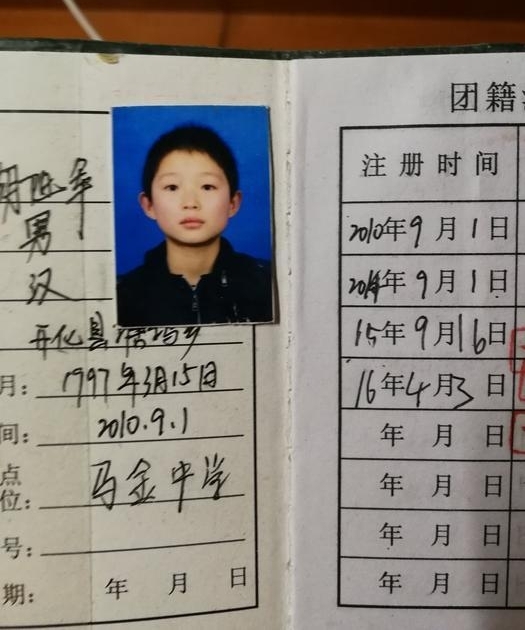 男
汉
开化县
月: 1997年3月15日
间: 2010.9.1
点
位: 马金中学
号:
期: 年 月 日
团籍
注册时间
2010年9月1日
2014年9月1日
15年9月16日
16年4月3日
年 月 日
年 月 日
年 月 日
年 月 日